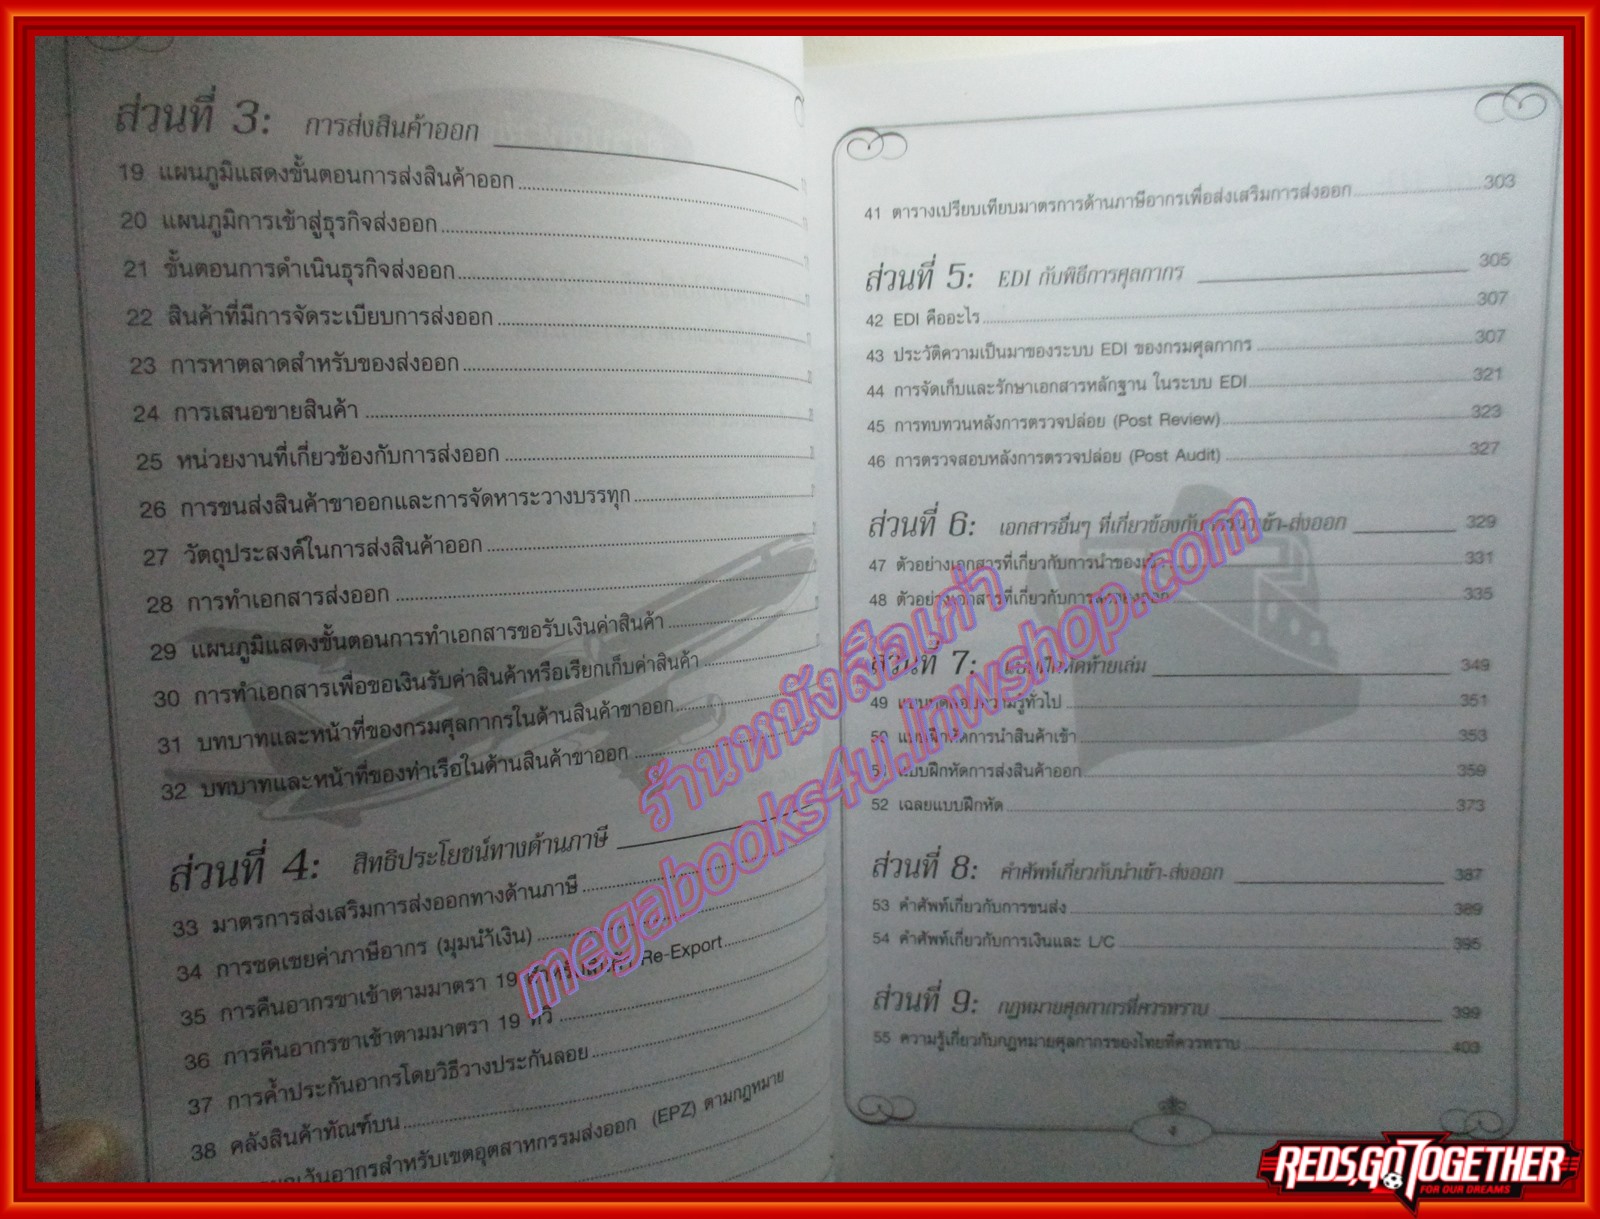 ส่วนที่ 3: การส่งสินค้าออก
19 แผนภูมิแสดงขั้นตอนการส่งสินค้าออก
20 แผนภูมิการเข้าสู่ธุรกิจส่งออก
21 ขั้นตอนการดำเนินธุรกิจส่งออก
22 สินค้าที่มีการจัดระเบียบการส่งออก
23 การหาตลาดสำหรับของส่งออก
24 การเสนอขายสินค้า
25 หน่วยงานที่เกี่ยวข้องกับการส่งออก
26 การขนส่งสินค้าขาออกและการจัดหาระวางบรรทุก
27 วัตถุประสงค์ในการส่งสินค้าออก
28 การทำเอกสารส่งออก
29 แผนภูมิแสดงขั้นตอนการทำเอกสารขอรับเงินค่าสินค้า
30 การทำเอกสารเพื่อขอเงินรับค่าสินค้าหรือเรียกเก็บค่าสินค้า
31 บทบาทและหน้าที่ของกรมศุลกากรในด้านสินค้าขาออก
32 บทบาทและหน้าที่ของท่าเรือในด้านสินค้าขาออก
ส่วนที่ 4: สิทธิประโยชน์ทางด้านภาษี
33 มาตรการส่งเสริมการส่งออกทางด้านภาษี
34 การชดเชยค่าภาษีอากร (มุมน้ำเงิน)
35 การคืนอากรขาเข้าตามมาตรา 19 สำหรับสินค้า Re-Export
36 การคืนอากรขาเข้าตามมาตรา 19 ทวิ
37 การค้ำประกันอากรโดยวิธีวางประกันลอย
38 คลังสินค้าทัณฑ์บน
อากรสำหรับเขตอุตสาหกรรมส่งออก (EPZ) ตามกฎหมาย
41 ตารางเปรียบเทียบมาตรการด้านภาษีอากรเพื่อส่งเสริมการส่งออก 303
ส่วนที่ 5: EDI กับพิธีการศุลกากร 305
42 EDI คืออะไร 307
43 ประวัติความเป็นมาของระบบ EDI ของกรมศุลกากร 307
44 การจัดเก็บและรักษาเอกสารหลักฐาน ในระบบ EDI 321
45 การทบทวนหลังการตรวจปล่อย (Post Review) 323
46 การตรวจสอบหลังการตรวจปล่อย (Post Audit) 327
ส่วนที่ 6: เอกสารอื่นๆ ที่เกี่ยวข้องกับการนำเข้า-ส่งออก 329
47 ตัวอย่างเอกสารที่เกี่ยวกับการนำของเข้า 331
48 ตัวอย่างเอกสารที่เกี่ยวกับการส่งของออก 335
ส่วนที่ 7: แบบฝึกหัดท้ายเล่ม 349
49 แบบทดสอบความรู้ทั่วไป 351
50 แบบฝึกหัดการนำสินค้าเข้า 353
51 แบบฝึกหัดการส่งสินค้าออก 359
52 เฉลยแบบฝึกหัด 373
ส่วนที่ 8: คำศัพท์เกี่ยวกับนำเข้า-ส่งออก 387
53 คำศัพท์เกี่ยวกับการขนส่ง 389
54 คำศัพท์เกี่ยวกับการเงินและ L/C 395
ส่วนที่ 9: กฎหมายศุลกากรที่ควรทราบ 399
55 ความรู้เกี่ยวกับกฎหมายศุลกากรของไทยที่ควรทราบ 403
ง
ร้านหนังสือเก่า
megabooks4u.lnwshop.com
REDS, GO TOGETHER
FOR OUR DREAMS